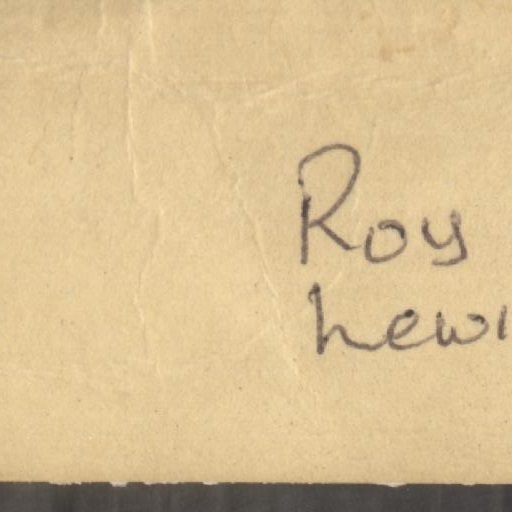 Roy
Lewi